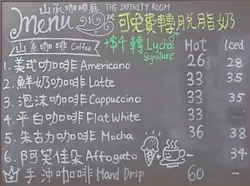 山氶咖啡廳 THE INFINITY ROOM
Menu 可免費轉脫脂奶
+$4 轉 Lychee Signature
山系咖啡 Coffee Hot Iced
1. 美式咖啡 Americano 26 28
2. 鮮奶咖啡 Latte 33 35
3. 泡沫咖啡 Cappuccino 33 35
4. 平白咖啡 Flat White 33 —
5. 朱古力咖啡 Mocha 36 38
6. 阿芙佳朵 Affogato 34
手沖咖啡 Hand Drip 60 —